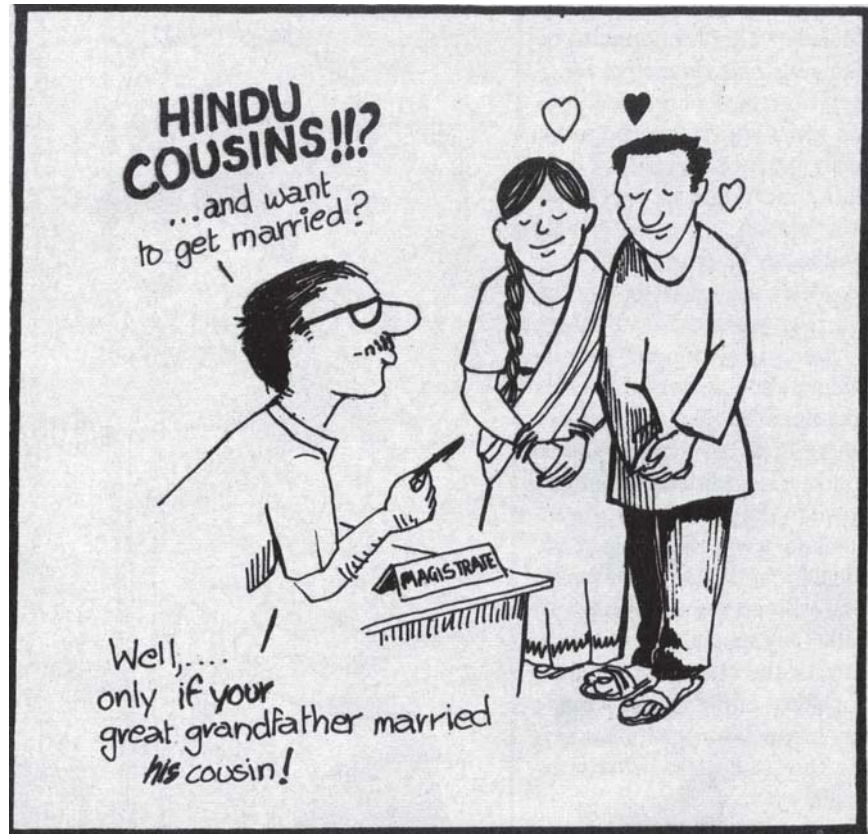 HINDU
COUSINS!!?
...and want
to get married?
MAGISTRATE
Well,....
only if your
great grandfather married
his cousin!